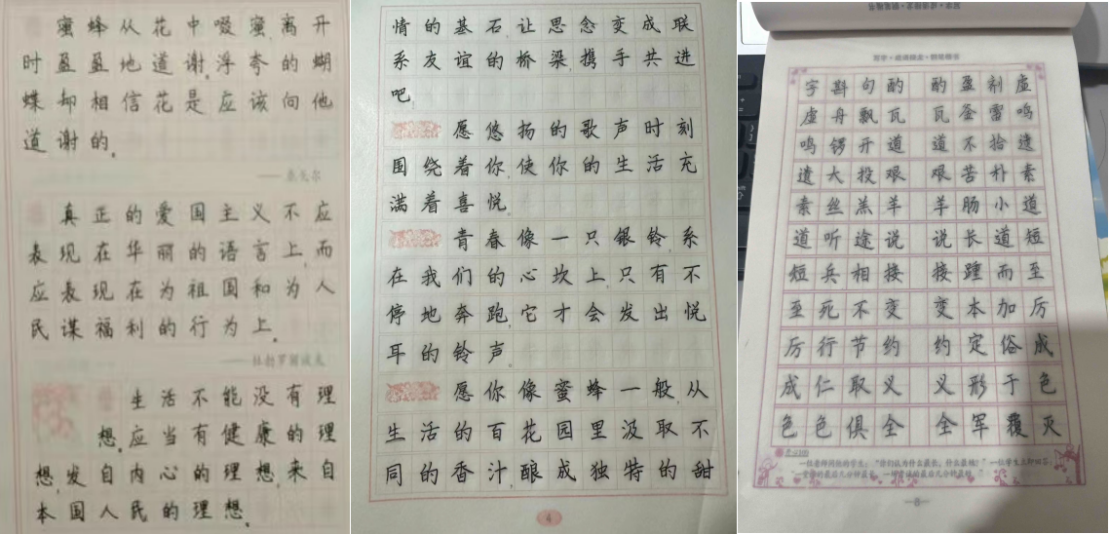 蜜蜂从花中啜蜜,离开
时盈盈地道谢。浮夸的蝴
蝶却相信花是应该向他
道谢的。
——泰戈尔
真正的爱国主义不应
表现在华丽的语言上,而
应表现在为祖国和为人
民谋福利的行为上。
——杜勃罗留波夫
生活不能没有理
想。应当有健康的理
想,发自内心的理想,来自
本国人民的理想。
情的基石,让思念变成联
系友谊的桥梁,携手共进
吧
愿悠扬的歌声时刻
围绕着你,使你的生活充
满着喜悦。
青春像一只银铃,系
在我们的心坎上,只有不
停地奔跑,它才会发出悦
耳的铃声。
愿你像蜜蜂一般,从
生活的百花园里汲取不
同的香汁,酿成独特的甜
4
字斟句酌 酌盈剂虚
虚舟飘瓦 瓦釜雷鸣
鸣锣开道 道不拾遗
遗大投艰 艰苦朴素
素丝羔羊 羊肠小道
道听途说 说长道短
短兵相接 接踵而至
至死不变 变本加厉
厉行节约 约定俗成
成仁取义 义形于色
色色俱全 全军覆灭